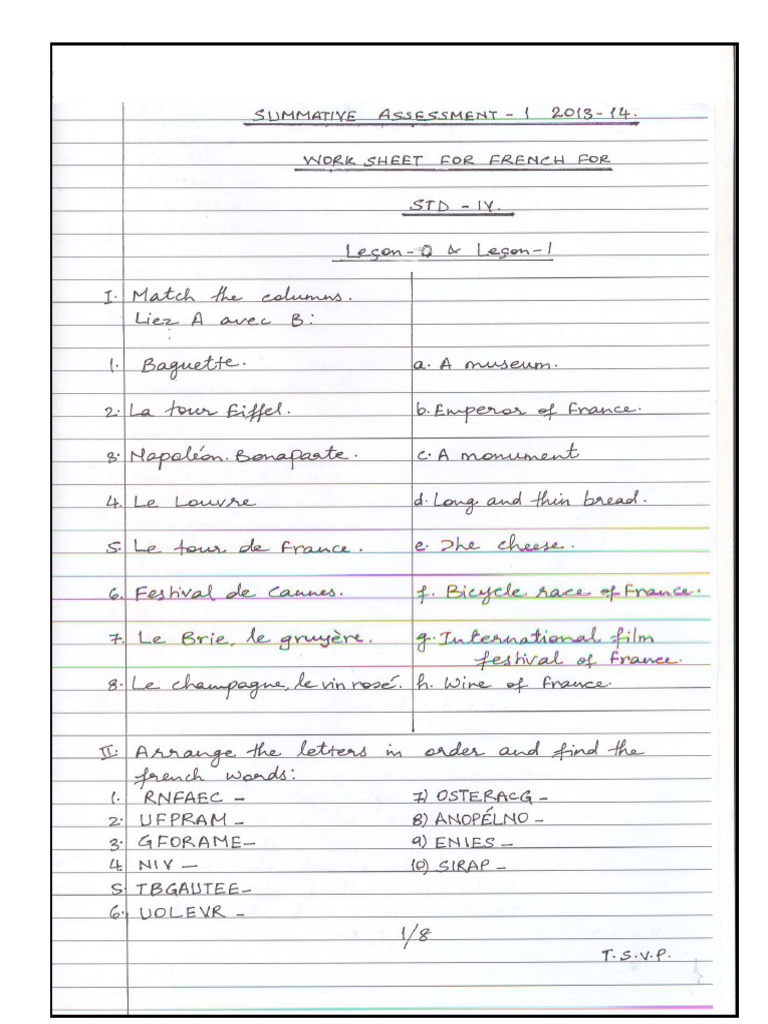 SUMMATIVE ASSESSMENT - 1 2013-14.
WORK SHEET FOR FRENCH FOR
STD - IV.
Leçon-0 & Leçon-1
I. Match the columns.
Liez A avec B:
1. Baguette. a. A museum.
2. La tour Eiffel. b. Emperor of France.
3. Napoléon. Bonaparte. c. A monument
4. Le Louvre d. Long and thin bread.
5. Le tour de France. e. The cheese.
6. Festival de Cannes. f. Bicycle race of France.
7. Le Brie, le gruyère. g. International film
festival of France.
8. Le champagne, le vin rosé. h. Wine of France.
II. Arrange the letters in order and find the
french words:
1. RNFAEC - 7) OSTERACG -
2. UFPRAM - 8) ANOPÉLNO -
3. GFORAME- 9) ENIES -
4. NIV - 10) SIRAP -
5. TBGAUTEE-
6. UOLEVR -
1/8
T.S.V.P.